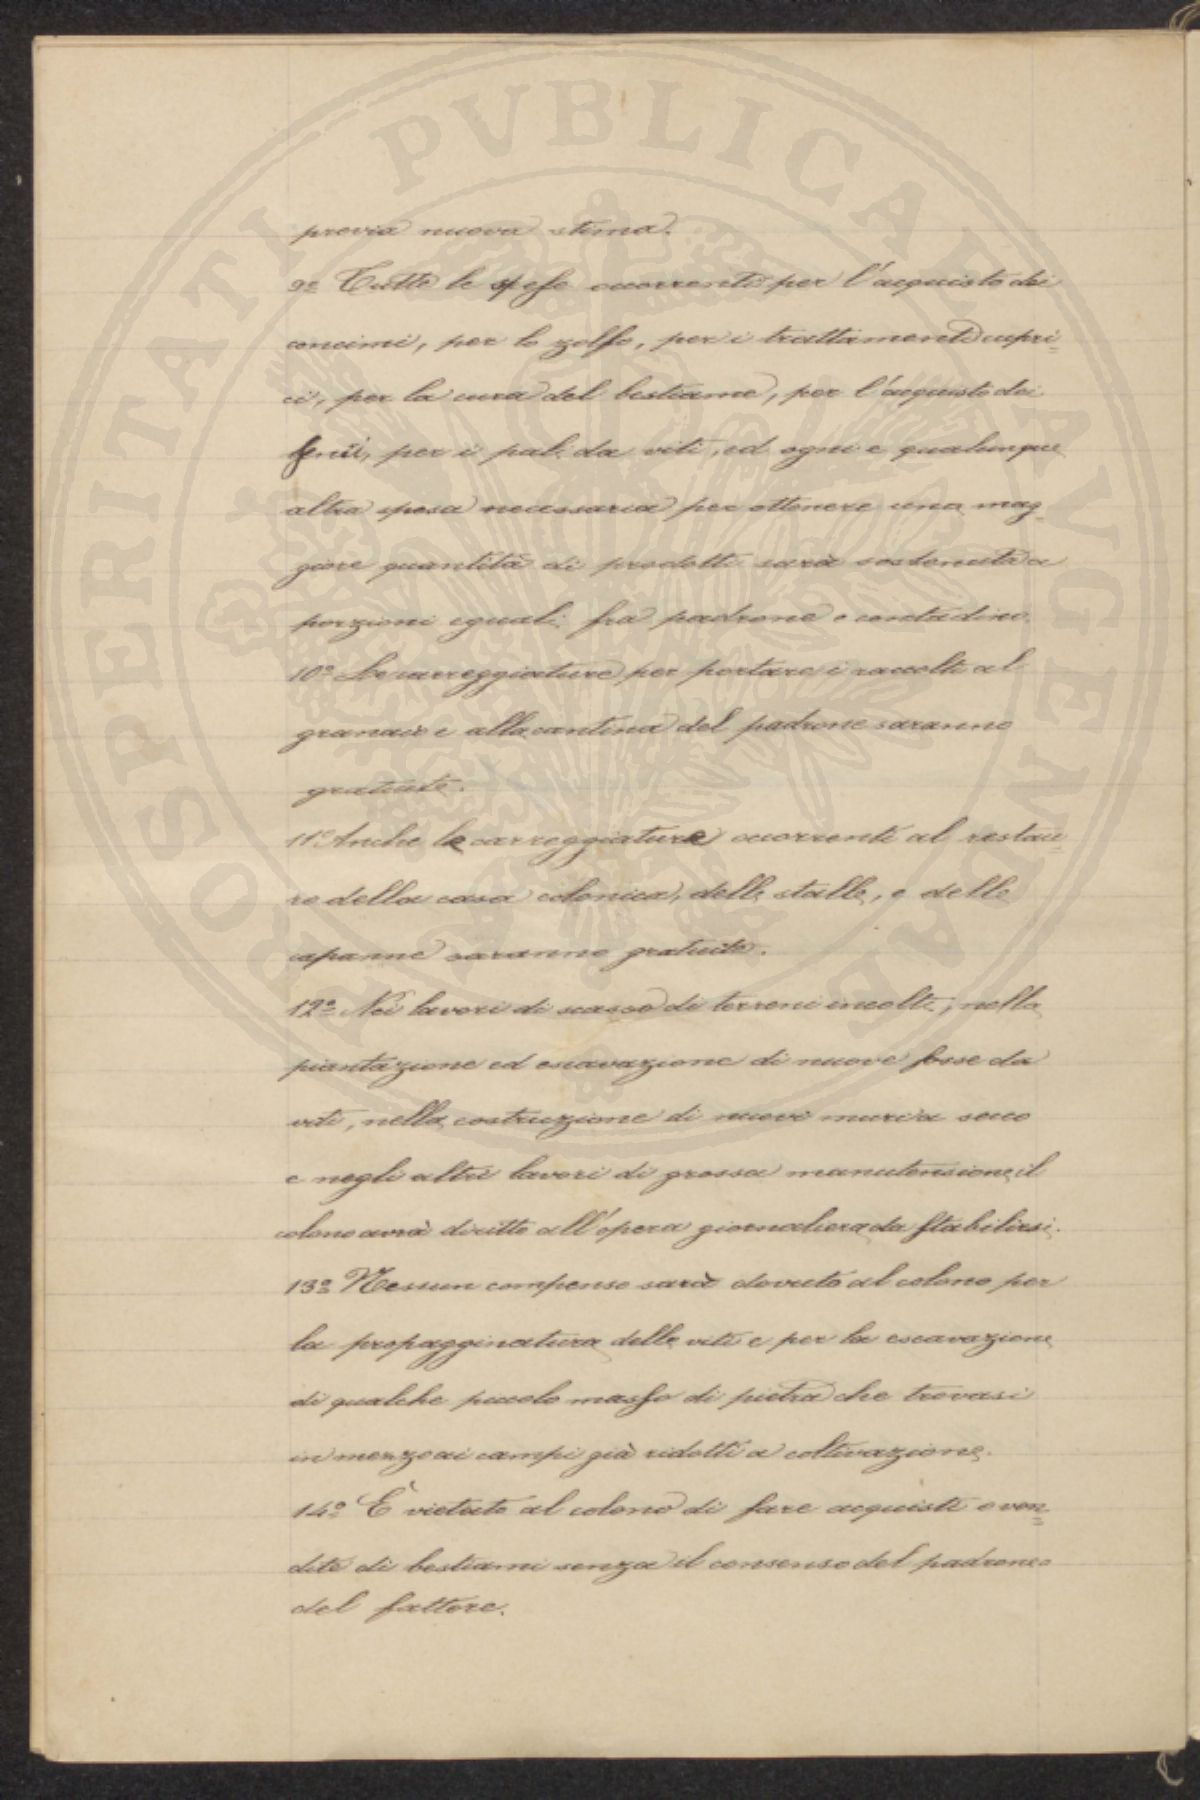 previa nuova stima.
9º Tutte le spese occorrenti per l'acquisto dei
concimi, per lo zolfo, per i trattamenti cupri=
ci, per la cura del bestiame, per l'acquisto dei
fieni, per i pali da viti, ed ogni e qualunque
altra spesa necessaria per ottenere una mag=
giore quantità di prodotti sarà sostenuta a
porzioni eguali fra padrone e contadino.
10º Le carreggiature per portare i raccolti al
granaio e alla cantina del padrone saranno
gratuite.
11º Anche le carreggiature occorrenti al restau=
ro della casa colonica, delle stalle, e delle
capanne saranno gratuite.
12º Nei lavori di scasso di terreni incolti, nella
piantazione ed escavazione di nuove fosse da
viti, nella costruzione di nuovi muri a secco
e negli altri lavori di grossa manutensione, il
colono avrà diritto all'opera giornaliera da stabilirsi.
13º Nessun compenso sarà dovuto al colono per
la propagginatura delle viti e per la escavazione
di qualche piccolo masso di pietra che trovasi
in mezzo ai campi già ridotti a coltivazione.
14º È vietato al colono di fare acquisti o ven=
dite di bestiami senza il consenso del padrone o
del fattore.
PROSPERITATI PVBLICAE AVGENDAE